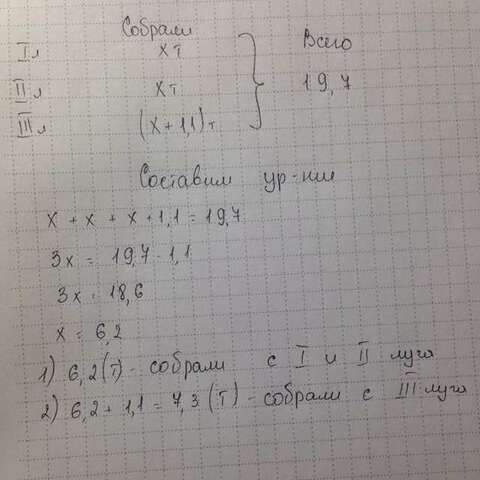 Собрали
I л х т Всего
II л х т 19,7
III л (х + 1,1) т
Составим ур-ние
х + х + х + 1,1 = 19,7
3х = 19,7 - 1,1
3х = 18,6
х = 6,2
1) 6,2 (т) - собрали с I и II луга
2) 6,2 + 1,1 = 7,3 (т) - собрали с III луга